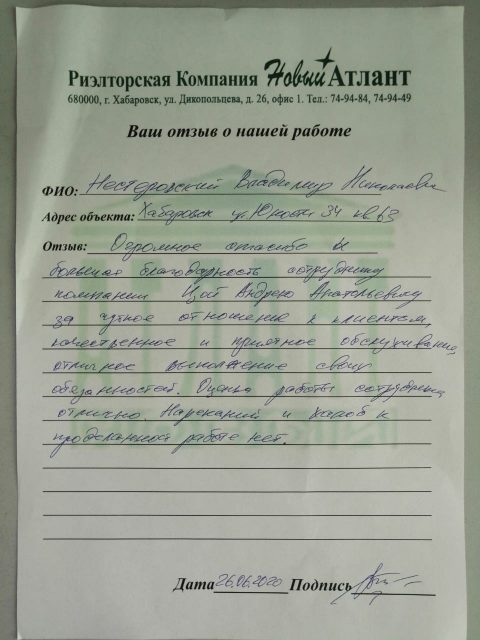 Риэлторская Компания Новый Атлант
680000, г. Хабаровск, ул. Дикопольцева, д. 26, офис 1. Тел.: 74-94-84, 74-94-49
Ваш отзыв о нашей работе
ФИО: Нестеровский Владимир Николаевич
Адрес объекта: Хабаровск ул Юности 34 кв 63
Отзыв: Огромное спасибо и
большая благодарность сотруднику
компании Цой Андрею Анатольевичу
за чуткое отношение к клиентам,
качественное и приятное обслуживание,
отличное выполнение своих
обязанностей. Оценка работы сотрудника
отлично. Нареканий и жалоб к
проделанной работе нет.
Дата 26.06.2020 Подпись